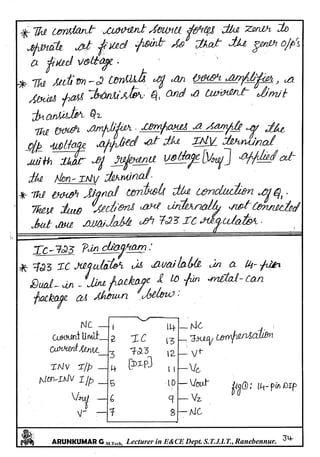 * The constant current source forces the zener to
operate at fixed point so that the zener o/p's
a fixed voltage.
* The section-2 consists of an error amplifier, a
series pass transistor Q1 and a current limit
transistor Q2
The error amplifier compares a sample of the
o/p voltage applied at the INV terminal
with that of reference voltage [Vref] applied at
the Non-INV terminal.
* The error signal controls the conduction of Q1.
These two sections are internally not connected
but are available on 723 IC regulator.
IC-723 Pin diagram:
* 723 IC regulator is available in a 14-pin
Dual-in-line package & 10 pin metal-can
package as shown below:
NC 1 14 NC
Current limit 2 IC 13 Freq compensation
Current sense 3 723 12 V+
INV I/p 4 [DIP] 11 Vc
Non-INV I/p 5 10 Vout fig①: 14-pin DIP
Vref 6 9 Vz
V- 7 8 NC
ARUNKUMAR G M.Tech, Lecturer in E&CE Dept. S.T.J.I.T., Ranebennur. 34